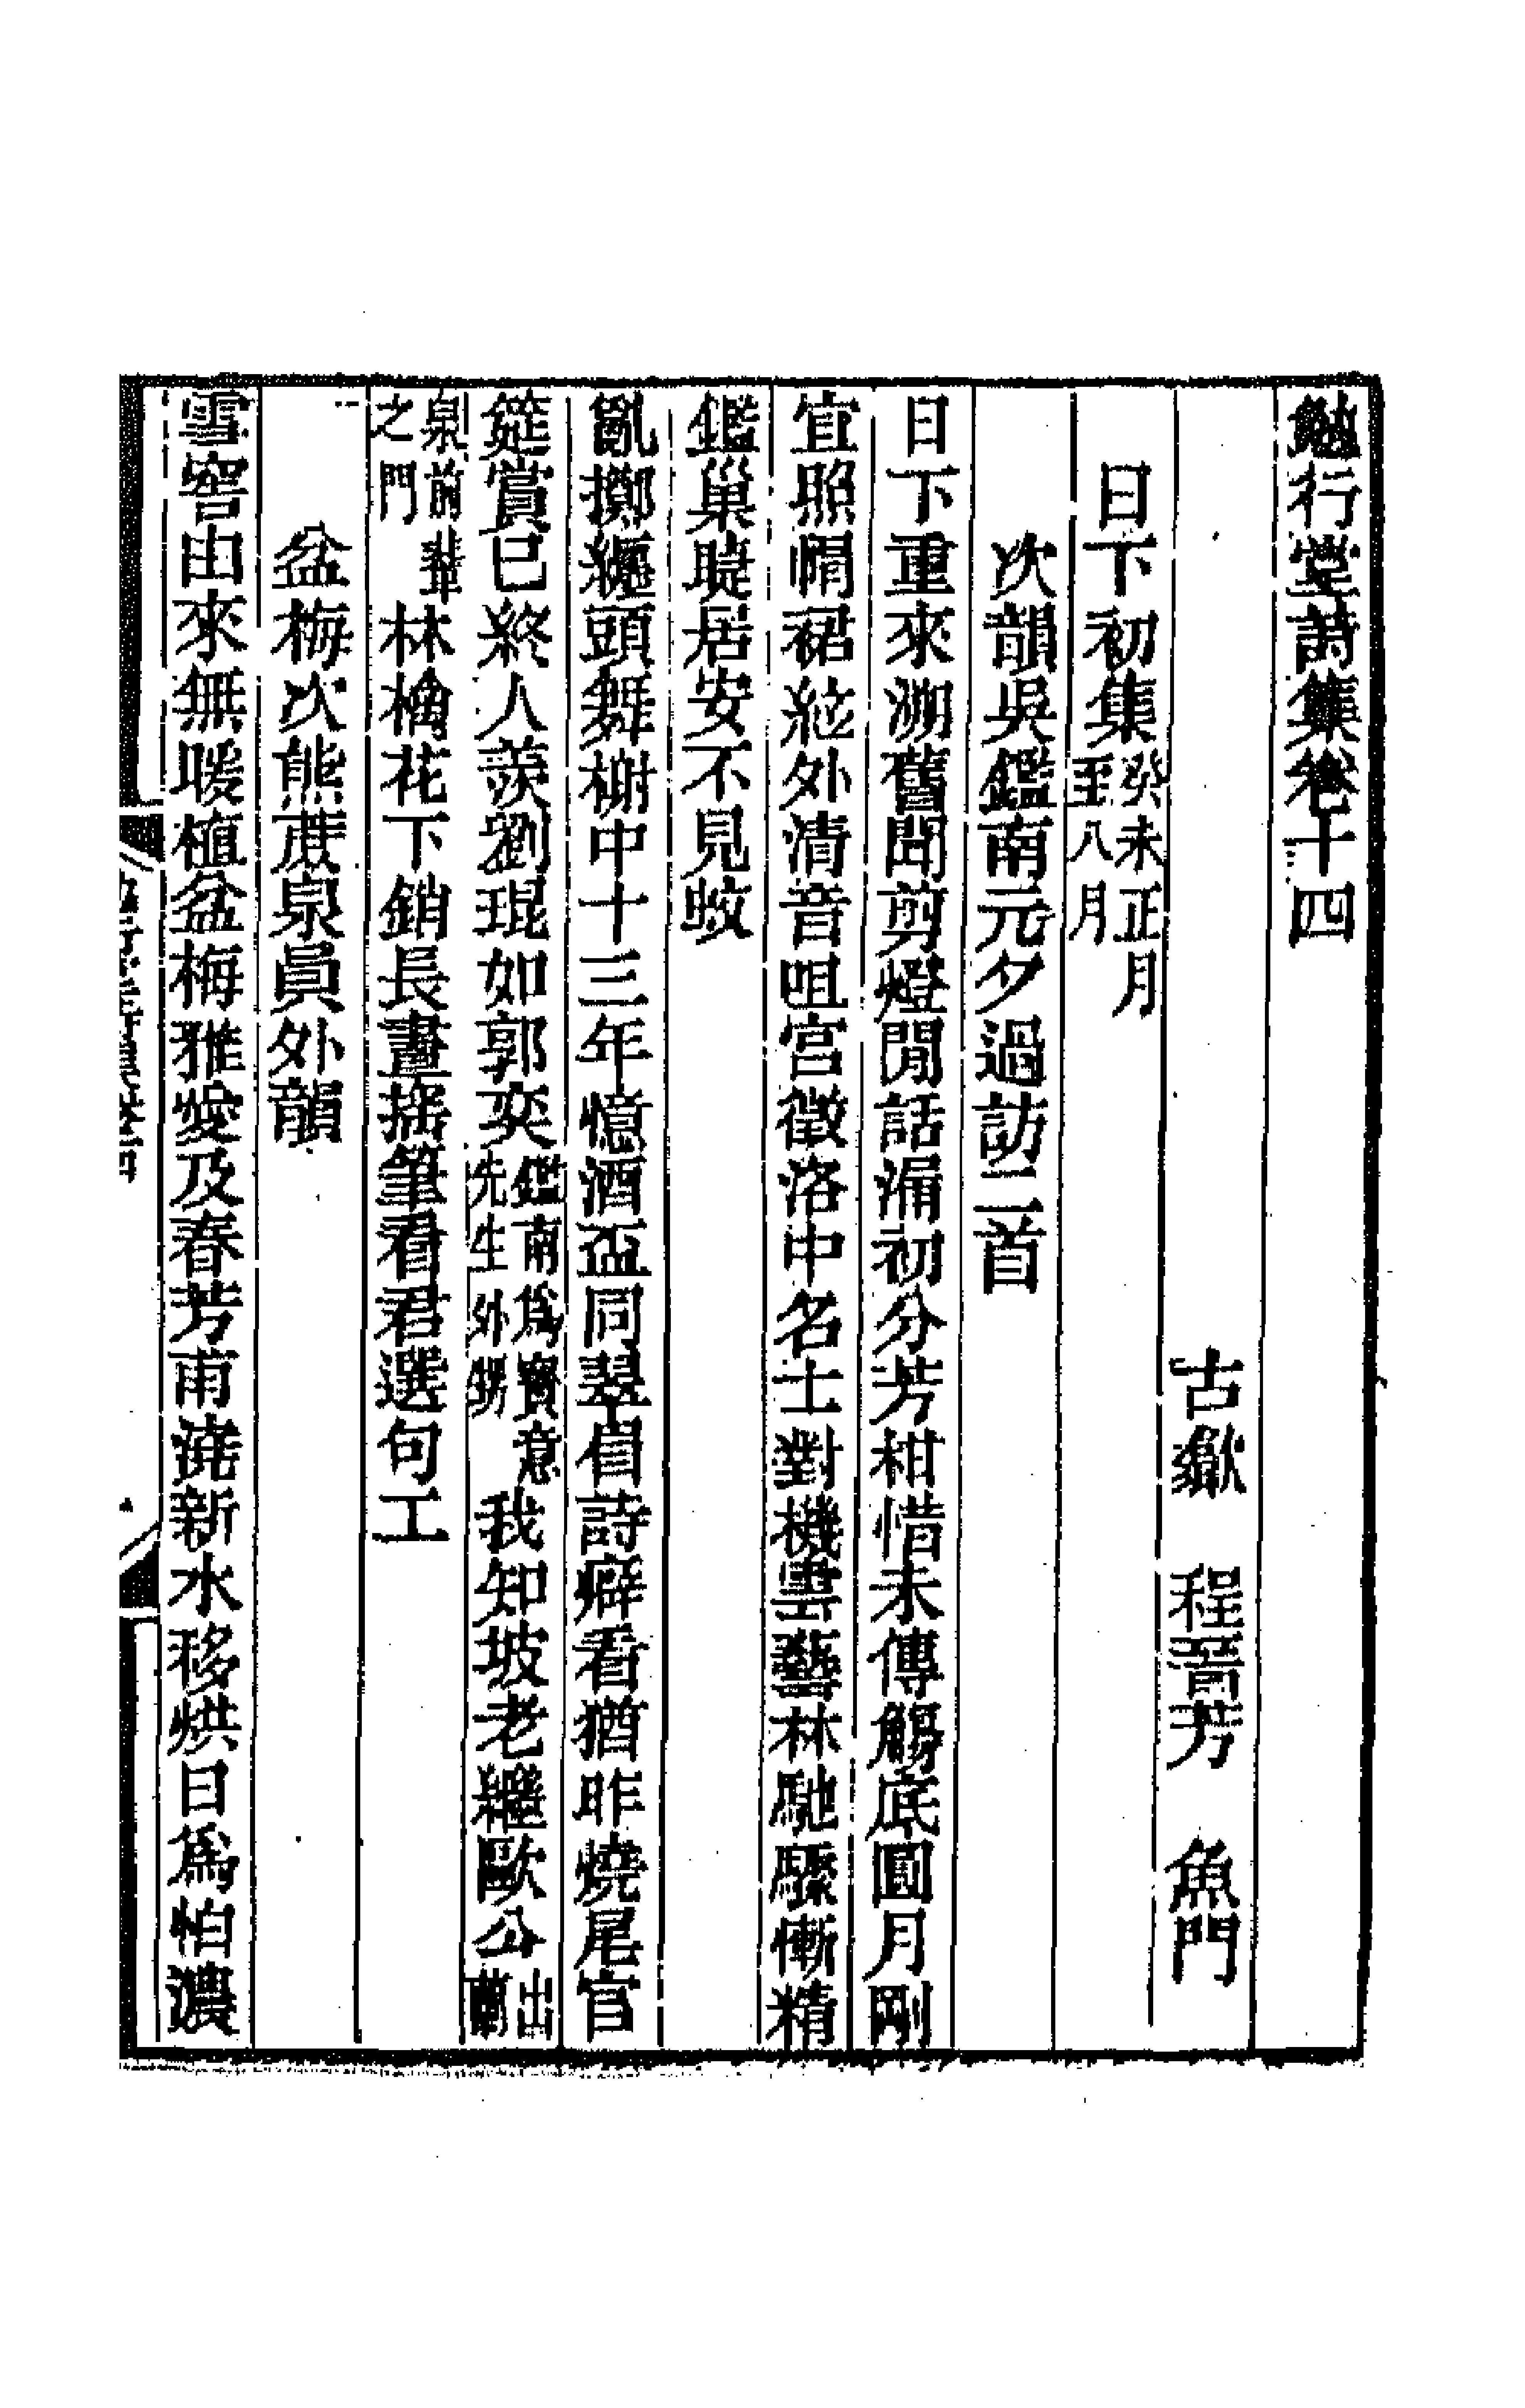 勉行堂詩集卷十四
古歙　程晉芳　魚門
日下初集癸未正月至八月
次韻吳鑑南元夕過訪二首
日下重來溯舊聞剪燈閒話漏初分芳柑惜未傳觴底圓月剛
宜照幘裙絃外清音咀宮徵洛中名士對機雲藝林馳驟慚精
鑑巢睫居安不見蚊
亂擲纏頭舞榭中十三年憶酒盃同翠眉詩癖看猶昨燒尾官
筵賞已終人羨劉琨如郭奕鑑南爲寶意先生外甥我知坡老繼歐公出南
泉前輩之門林檎花下銷長晝摇筆看君選句工
盆梅次熊蔗泉員外韻
雪窖由來無暖植盆梅雅愛及春芳甫澆新水移烘日爲怕濃